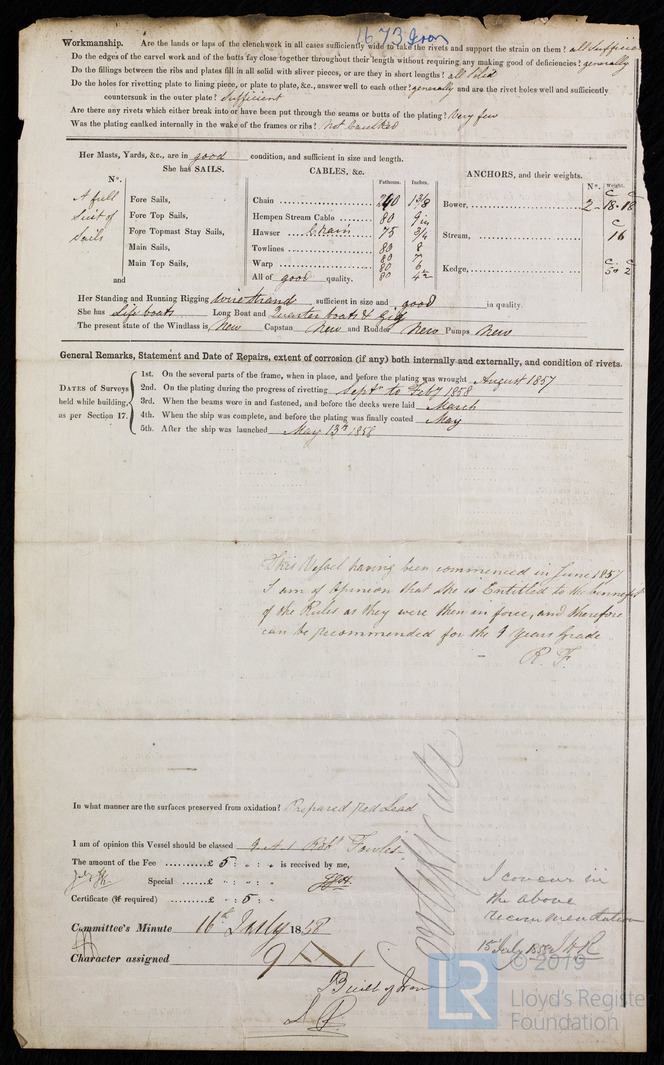 1673 Iron
Workmanship. Are the lands or laps of the clenchwork in all cases sufficiently wide to take the rivets and support the strain on them? all Suffici
Do the edges of the carvel work and of the butts fay close together throughout their length without requiring any making good of deficiencies? generally
Do the fillings between the ribs and plates fill in all solid with sliver pieces, or are they in short lengths? all solid
Do the holes for rivetting plate to lining piece, or plate to plate, &c., answer well to each other? generally and are the rivet holes well and sufficiently
countersunk in the outer plate? Sufficient
Are there any rivets which either break into or have been put through the seams or butts of the plating? Very few
Was the plating caulked internally in the wake of the frames or ribs? Not Caulked
Her Masts, Yards, &c., are in good condition, and sufficient in size and length.
She has SAILS. CABLES, &c. ANCHORS, and their weights.
Nº. Fathoms. Inches. Nº. Weight.
A full Suit of Sails
Fore Sails,
Fore Top Sails,
Fore Topmast Stay Sails,
Main Sails,
Main Top Sails,
and
Chain 240 1 3/8
Hempen Stream Cable 80 9 in
Hawser Chain 75 3/4
Towlines 80 8
80 7
Warp 80 6
All of good quality. 80 4½
C C
Bower, 2 - 18 - 18
C
Stream, 16
C C
Kedge, 5 2
Her Standing and Running Rigging wire strand, sufficient in size and good in quality.
She has Life boats Long Boat and Quarter boats & Gig
The present state of the Windlass is New Capstan New and Rudder New Pumps New
General Remarks, Statement and Date of Repairs, extent of corrosion (if any) both internally and externally, and condition of rivets.
DATES of Surveys held while building, as per Section 17.
1st. On the several parts of the frame, when in place, and before the plating was wrought August 1857
2nd. On the plating during the progress of rivetting Septr to Feby 1858
3rd. When the beams were in and fastened, and before the decks were laid March
4th. When the ship was complete, and before the plating was finally coated May
5th. After the ship was launched May 13th 1858
This Vessel having been commenced in June 1857
I am of Opinion that she is Entitled to the
of the Rules as they were then in force, and therefore
can be recommended for the 9 Years Grade
R. F.
In what manner are the surfaces preserved from oxidation? Prepared red Lead
I am of opinion this Vessel should be classed 9 A 1 Robt Fowles
The amount of the Fee £ 5 : " : " is received by me,
Special £ " : " : "
Certificate (if required) £ " : 5 : "
Certificate
I concur in
the above
recommendation
15 July 1858
Committee's Minute 16th July 1858
Character assigned 9 A 1
Built of Iron
© 2019
LR
Lloyd's Register
Foundation